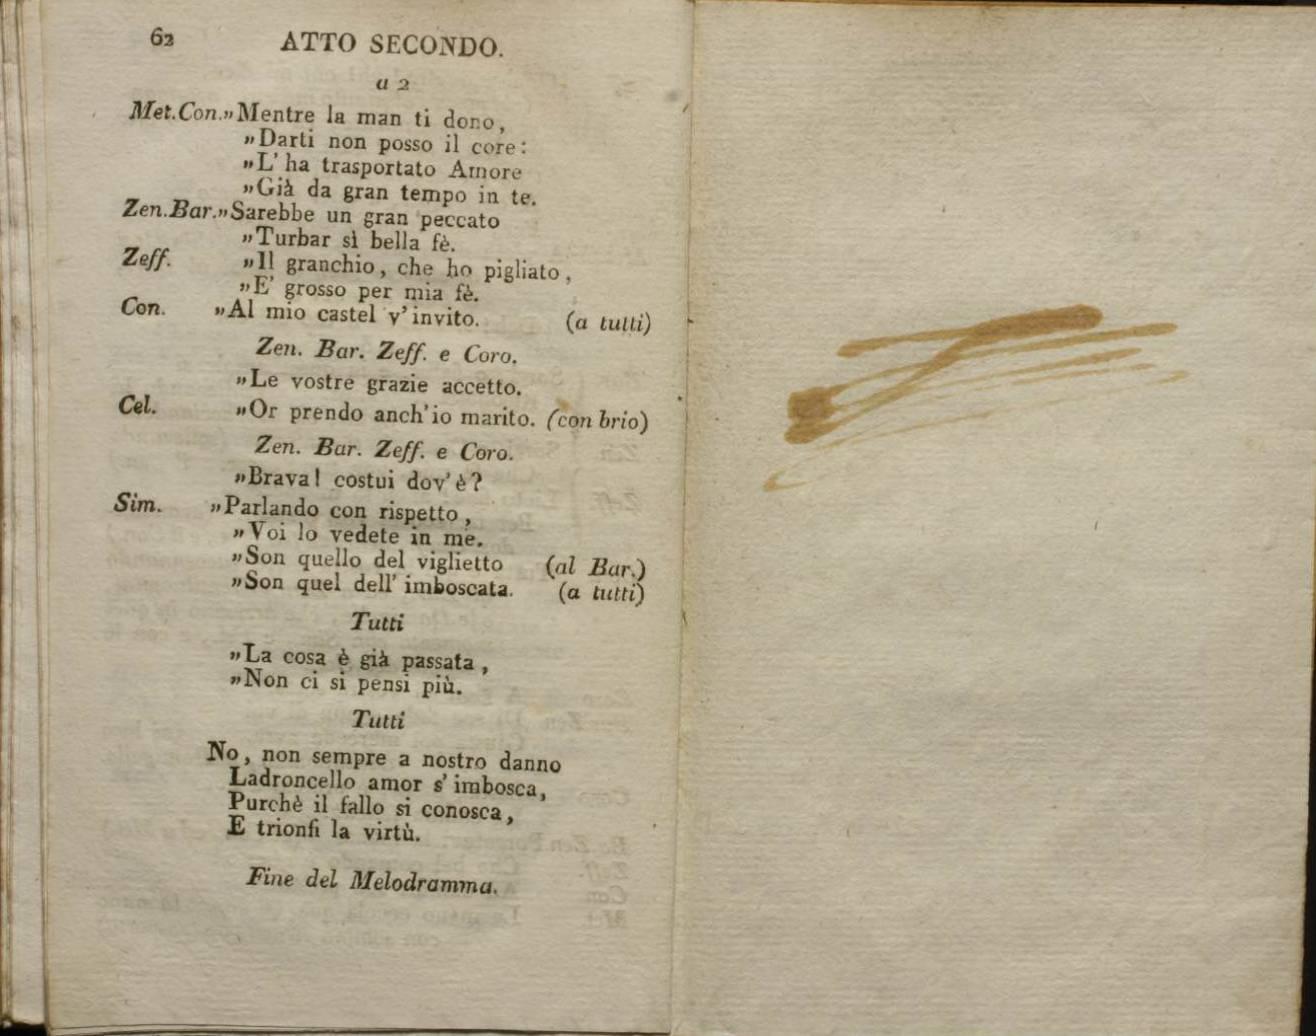 62 ATTO SECONDO.
a 2
Met. Con. „Mentre la man ti dono,
„Darti non posso il core:
„L' ha trasportato Amore
„Già da gran tempo in te.
Zen. Bar. „Sarebbe un gran peccato
„Turbar sì bella fè.
Zeff. „Il granchio, che ho pigliato,
„E' grosso per mia fè.
Con. „Al mio castel v'invito. (a tutti)
Zen. Bar. Zeff. e Coro.
„Le vostre grazie accetto.
Cel. „Or prendo anch'io marito. (con brio)
Zen. Bar. Zeff. e Coro.
„Brava! costui dov'è?
Sim. „Parlando con rispetto,
„Voi lo vedete in me.
„Son quello del viglietto (al Bar.)
„Son quel dell' imboscata. (a tutti)
Tutti
„La cosa è già passata,
„Non ci si pensi più.
Tutti
No, non sempre a nostro danno
Ladroncello amor s' imbosca,
Purchè il fallo si conosca,
E trionfi la virtù.
Fine del Melodramma.